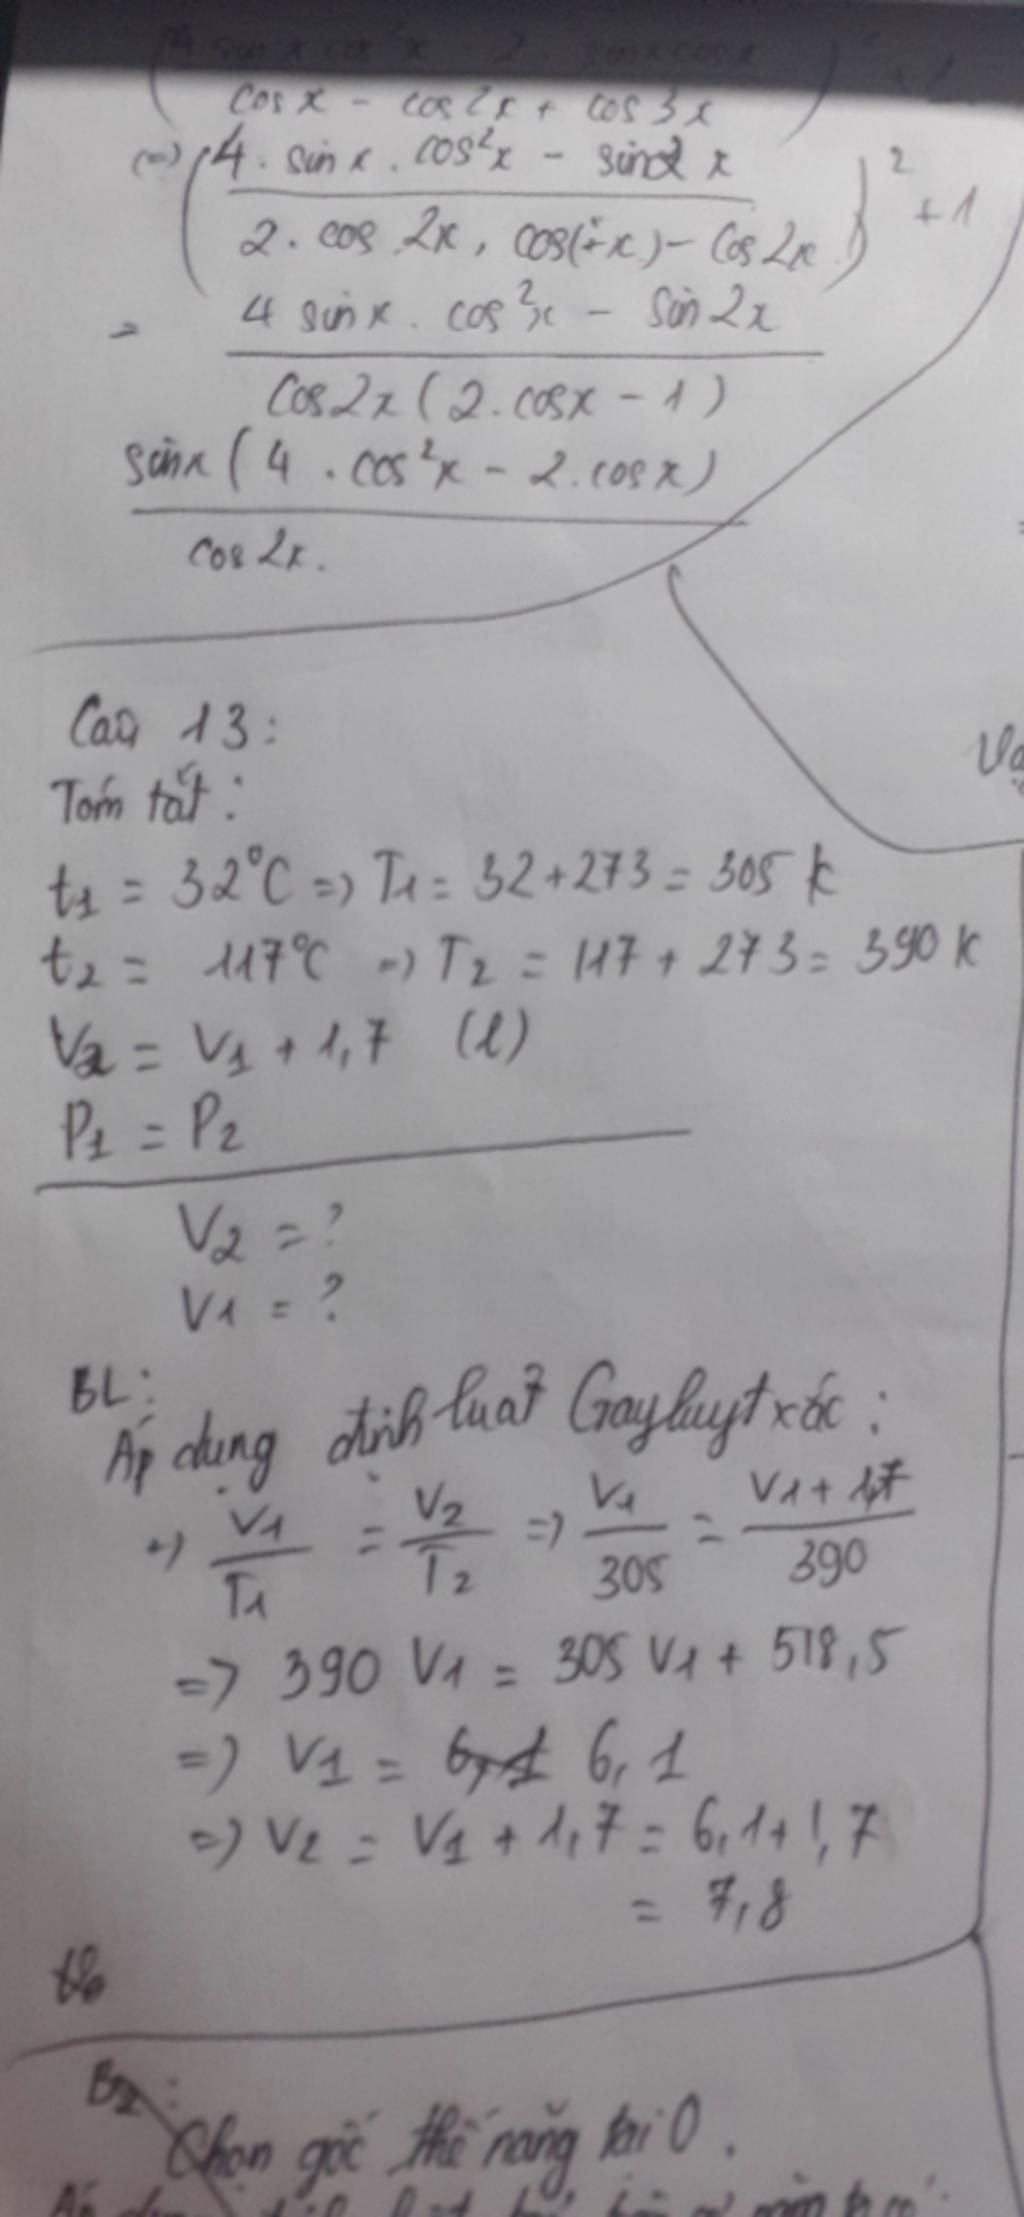 cos x - cos 2x + cos 3x
(=) (4 . sin x . cos²x - sin 2 x
2 . cos 2x . cos(+x) - cos 2x)² + 1
= 4 sin x . cos²x - sin 2x
cos 2x ( 2 . cos x - 1 )
sin x ( 4 . cos²x - 2 . cos x )
cos 2x .
Câu 13 :
Tóm tắt :
t1 = 32°C => T1 = 32 + 273 = 305 k
t2 = 117°C => T2 = 117 + 273 = 390 k
V2 = V1 + 1,7 (l)
P1 = P2
V2 = ?
V1 = ?
BL :
Áp dụng định luật Gayluytxác :
=> V1/T1 = V2/T2 => V1/305 = V1 + 1,7/390
=> 390 V1 = 305 V1 + 518,5
=> V1 = 6,1 6,1
=> V2 = V1 + 1,7 = 6,1 + 1,7
= 7,8
B2 :
Chọn gốc thế năng tại O .